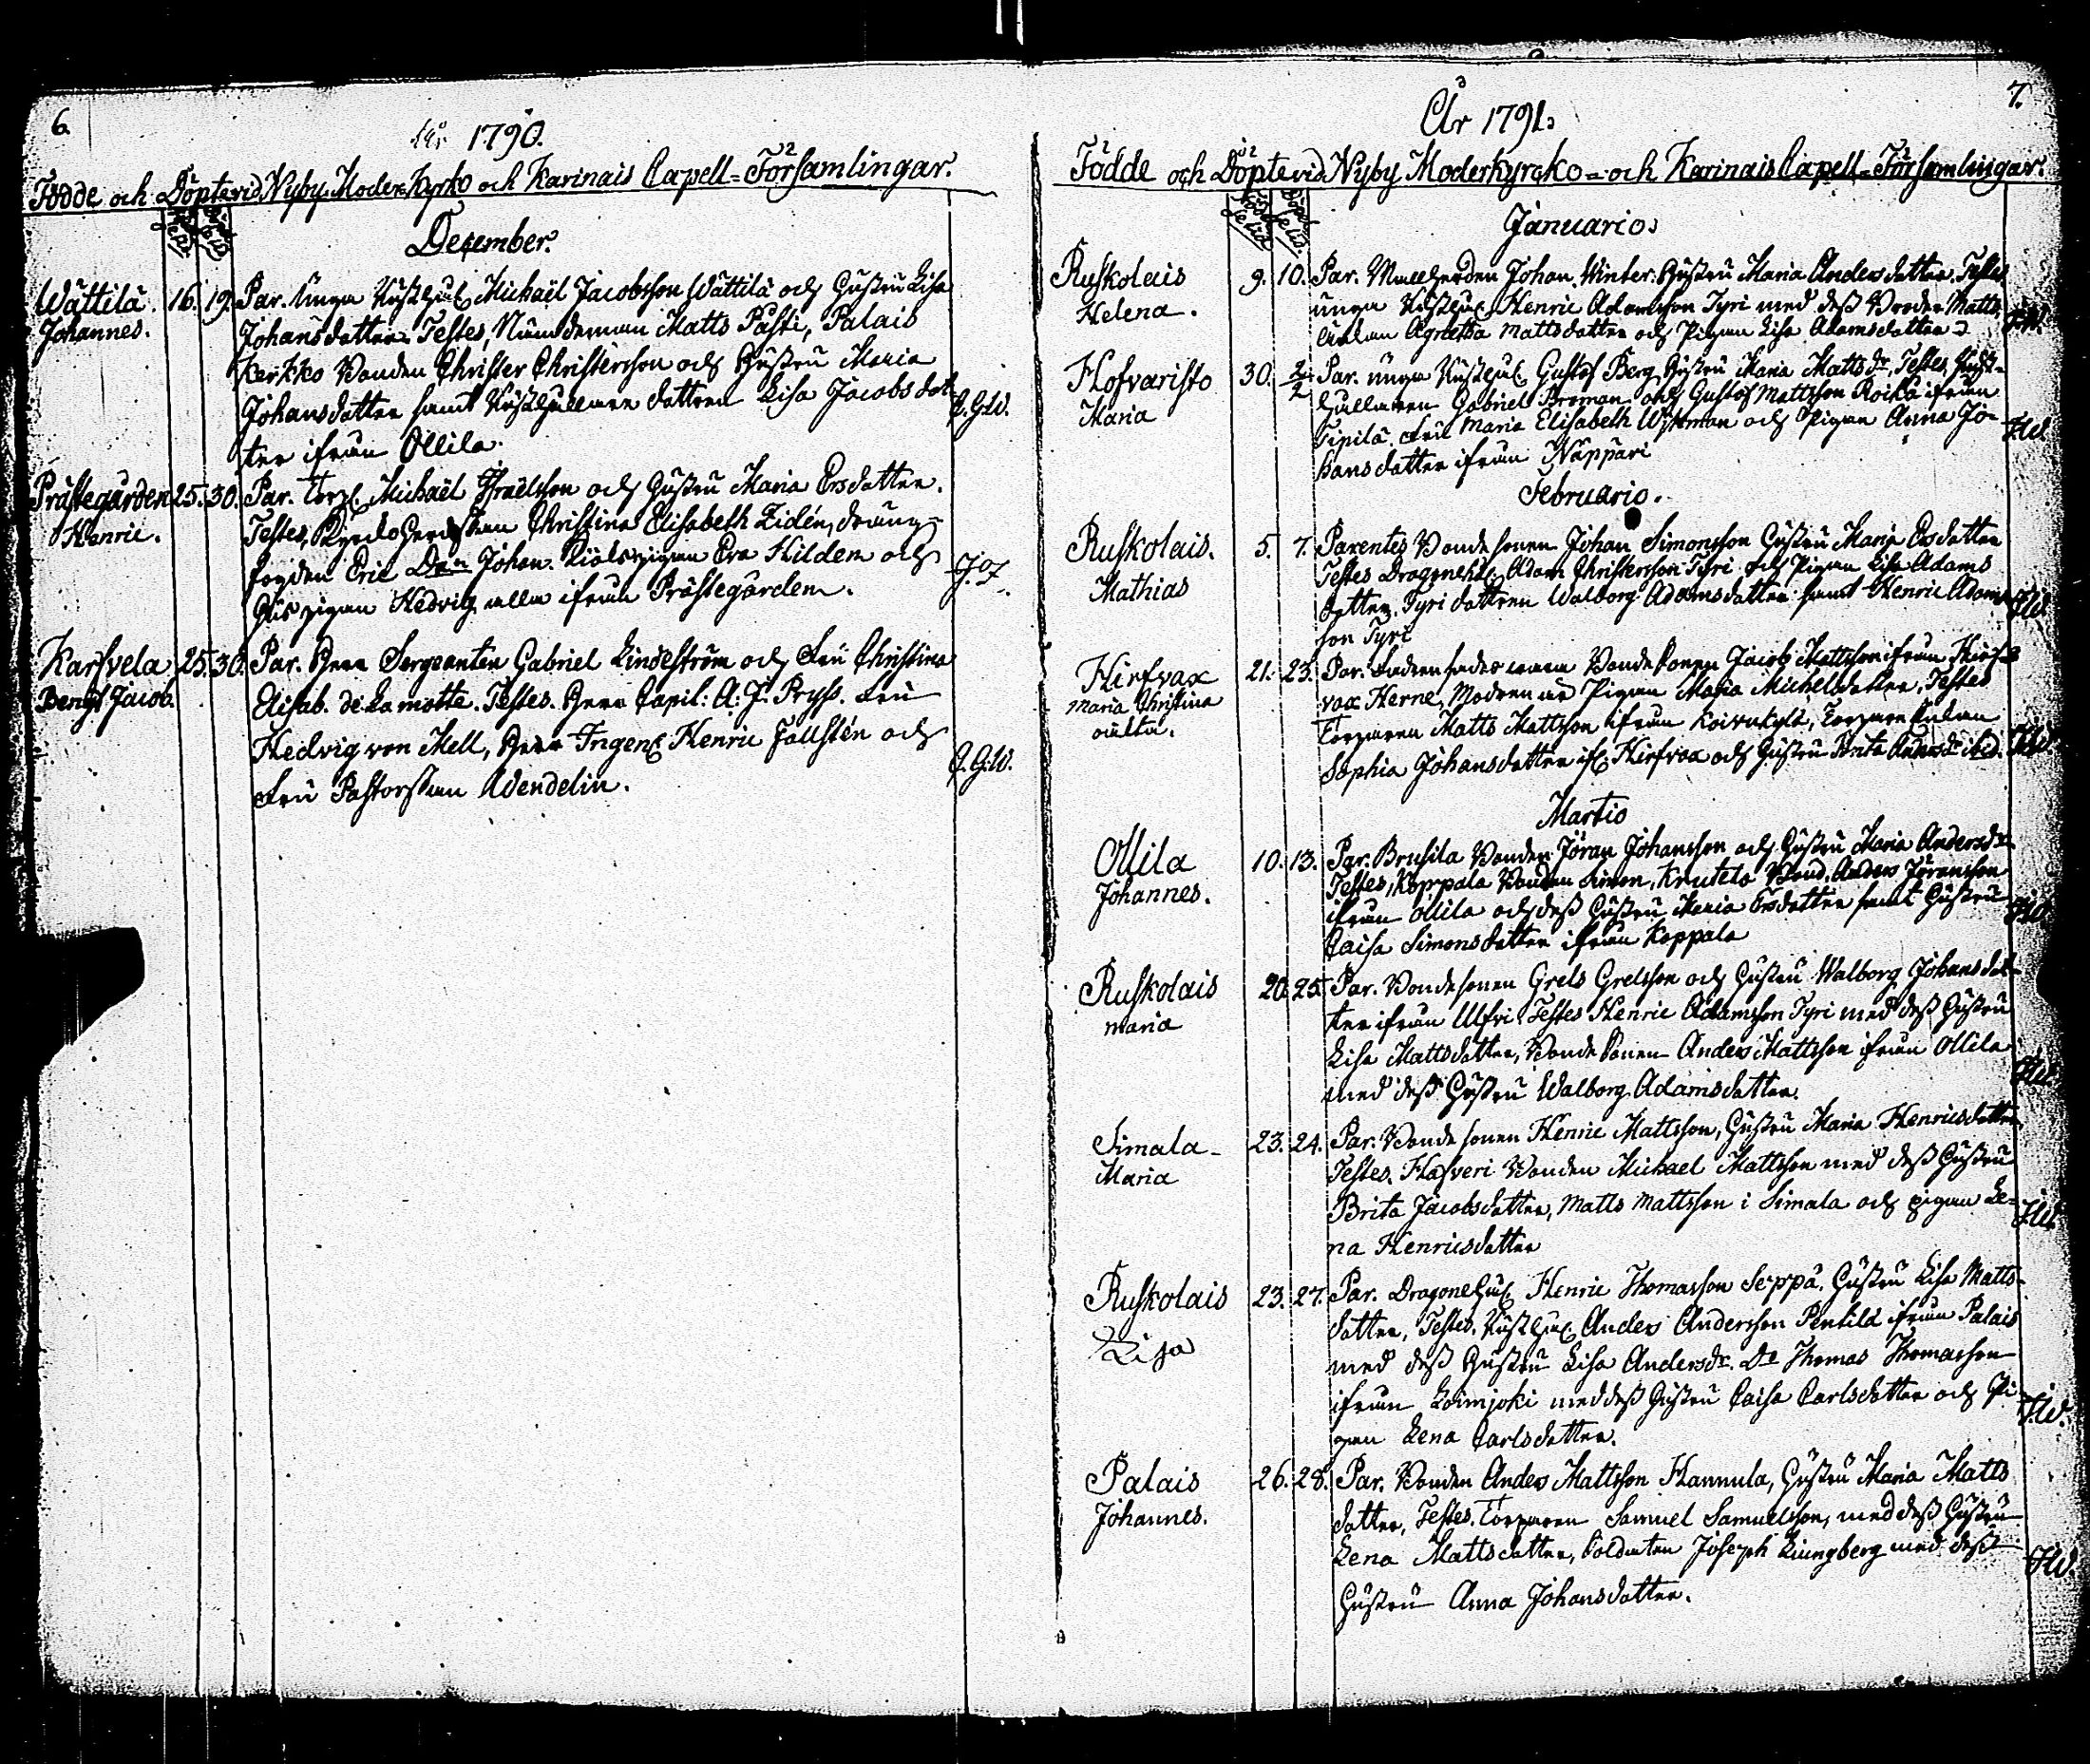 6.
År 1790.
Födde och Döpte vid Nyby Moder Kyrko och Karinais Capell=Församlingar.
December.
Wättilä. 16. 19. Par. Unga Rusthål. Michaël Jacobsson Wättilä och Hustru Lisa
Johannes. Johansdotter. Testes, Nämndeman Matts Pästi, Palais
Kerkko Bonden Christer Christersson och Hustru Maria
Johansdotter samt Rusthållare dottren Lisa Jacobs dot-
ter ifrån Ollila. G.G.W.
Prästegården 25. 30. Par. Torp. Michaël Israelsson och Hustru Maria Ersdotter.
Henric. Testes, Kyrckoherdskan Christina Elisabeth Zidén, dräng-
fogden Eric Johan. pigan Eva Hilden och
Hus pigan Hedvig alla ifrån Prästegården.
Karsvela 25. 30. Par. Herr Sergeanten Gabriel Lindeström och Fru Christina
Bengt Jacob. Elisab. de La motte. Testes. Herr Capit: A: J. Pryss. Fru
Hedvig von Mell, Herr Ingen Henric Fallstén och
Fru Pastorskan Wendelin. G.G.W.
7.
År 1791.
Födde och Döpte vid Nyby Moderkyrcko=och Karinais Capell=Församlingar.
Januario.
Ruskolais 9. 10. Par. Johan Winter. Hustru Maria Andersdotter. Testes
Helena. unga Rusthål. Henric Adamsson Tyri med dess Broder Matts,
Enkan Agnetha Mattsdotter och Pigan Lisa Adamsdotter
Hofvaristo 30. 2/2 Par. unga Rusthål. Gustof Berg, Hustru Maria Matts dr. Testes, Rust-
Maria hållaren Gabriel Broman och Gustof Mattsson Roika ifrån
Sipilä. Fru Maria Elisabeth Wykman och Pigan Anna Jo-
hansdotter ifrån Näppäri
Februario.
Ruskolais. 5. 7. Parentes Bondesonen Johan Simonsson Hustru Maria Ersdotter
Mathias Testes Dragonehål. Adam Christersson Tyri och Pigan Lisa Adams
dotter. Tyri dottren Walborg Adamsdotter samt Henric Adams-
son Tyri
Hirfvax 21. 23. Par. Fadren Bondesonen Jacob Mattsson ifrån Hirf-
Maria Christina vax Herne, Modren är Pigan Maria Michelsdotter, Testes
oäkta. Torparen Matts Mattsson ifrån Koivukylä, Torpare Enkan
Sophia Johansdotter if. Hirfvox och Hustru Brita Anders dr. ibid.
Martio
Ollila 10. 13. Par. Brusila Bonden Jöran Johansson och Hustru Maria Andersdr.
Johannes. Testes, Koppala Bonden Simon, Knutela Bond. Anders Jöransson
ifrån Ollila och dess Hustru Maria Ersdotter samt Hustru
Caisa Simonsdotter ifrån Koppala
Ruskolais 20. 25. Par. Bondesonen Grels Grelsson och Hustru Walborg Johans dot-
maria ter ifrån Ulfri Testes Henric Adamsson Tyri med dess Hustru
Lisa Mattsdotter, Bonde Sonen Anders Mattsson ifrån Ollila
med dess Hustru Walborg Adamsdotter.
Simala 23. 24. Par. Bonde sonen Henric Mattsson, Hustru Maria Henricsdotter
Maria Testes. Hafveri Bonden Michael Mattsson med dess Hustru
Brita Jacobsdotter, Matts Mattsson i Simala och pigan Le-
na Henricsdotter
Ruskolais 23. 27. Par. Dragonehål. Henric Thomasson Seppä, Hustru Lisa Matts-
Lisa dotter, Testes. Rusthål. Anders Andersson Pentilä ifrån Palais
med dess Hustru Lisa Andersdr. Do Thomas Thomasson
ifrån Loimjoki med dess Hustru Caisa Carlsdotter och Pi-
gan Lena Carlsdotter.
Palais 26. 28. Par. Bonden Anders Mattsson Hannula, Hustru Maria Matts
Johannes. dotter, Testes. Torparen Samuel Samuelsson, med dess Hustru
Lena Mattsdotter, Soldaten Joseph Liungberg med dess
Hustru Anna Johansdotter.